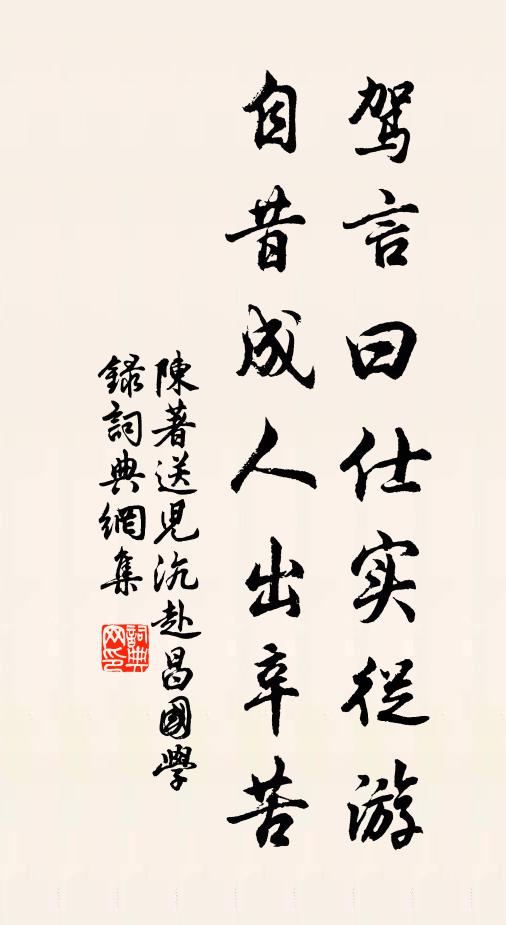 驾言曰仕实從游
自昔成人出辛苦
陳著送児沆赴昌國學
録詞典網集
詞典
网印